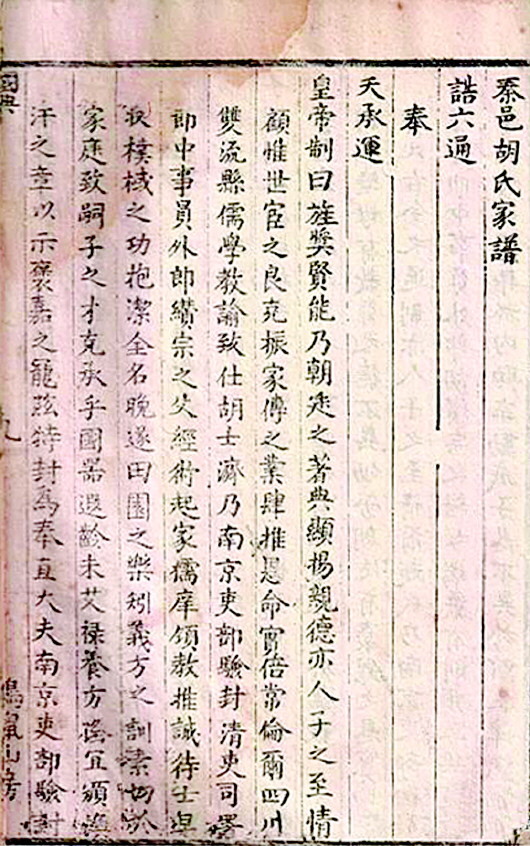 秦邑胡氏家譜
誥六通
奉
天承運
皇帝制曰旌獎賢能乃朝廷之著典顯揚親德亦人子之至情
顧惟世宦之良克振家傳之業肆推恩命實倍常倫爾四川
雙流縣儒學教諭致仕胡士濂乃南京吏部驗封清吏司署
郎中事員外郎纘宗之父經術起家儒庠領教推誠待士卓
收棫樸之功抱潔全名晚遂田園之樂矧義方之訓素切於
家庭致嗣子之才克承乎國器遐齡未艾祿養方隆宜頒渙
汗之章以示褒嘉之寵茲特封為奉直大夫南京吏部驗封
國典
九
鳥鼠山房